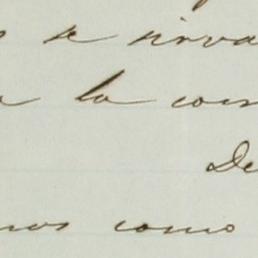 se sirva
a la com
De
nos como